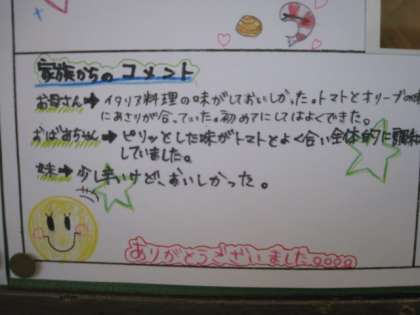 家族からのコメント
お母さん→イタリア料理の味がしておいしかった。トマトとオリーブの味
にあさりが合っていた。初めてにしてはよくできた。
おばあちゃん→ピリッとした味がトマトとよく合い全体的に
していました。
妹→少し辛いけど、おいしかった。
ありがとうございました。。。。